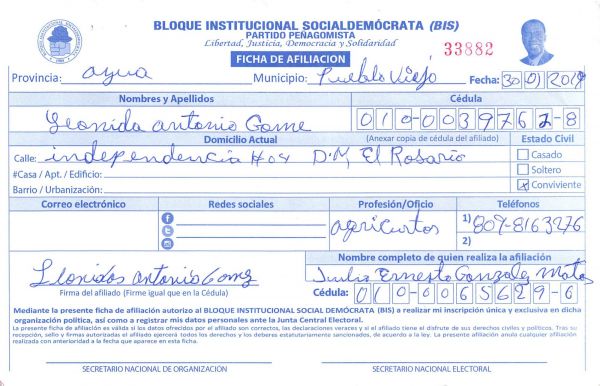 BLOQUE INSTITUCIONAL SOCIALDEMÓCRATA (BIS)
PARTIDO PEÑAGOMISTA
Libertad, Justicia, Democracia y Solidaridad
FICHA DE AFILIACIÓN
33882
Provincia: azua Municipio: Pueblo Viejo Fecha: 30/01/2019
Nombres y Apellidos Cédula
Leonida antonio Gome 010-0039762-8
Domicilio Actual (Anexar copia de cédula del afiliado) Estado Civil
Calle: independencia #04 D.M, El Rosario Casado
#Casa / Apt. / Edificio: Soltero
Barrio / Urbanización: x Conviviente
Correo electrónico Redes sociales Profesión/Oficio Teléfonos
agricurtos 1) 809-8163276
2)
Nombre completo de quien realiza la afiliación
Lionidas antonio Gomez Julio Ernesto Gonzalez Matos
Firma del afiliado (Firme igual que en la Cédula) Cédula: 010-0065629-6
Mediante la presente ficha de afiliación autorizo al BLOQUE INSTITUCIONAL SOCIAL DEMÓCRATA (BIS) a realizar mi inscripción única y exclusiva en dicha
organización política, así como a registrar mis datos personales ante la Junta Central Electoral.
La presente ficha de afiliación es válida si los datos ofrecidos por el afiliado son correctos, las declaraciones veraces y si el afiliado tiene el disfrute de sus derechos civiles y políticos. Tras su
recepción, sello y firma autorizadas el afiliado ejercerá todos los derechos y los deberes estatutariamente sancionados, de acuerdo a la ley. La presente afiliación anula cualquier afiliación
realizada con anterioridad a la fecha que aparece en esta ficha.
SECRETARIO NACIONAL DE ORGANIZACIÓN SECRETARIO NACIONAL ELECTORAL